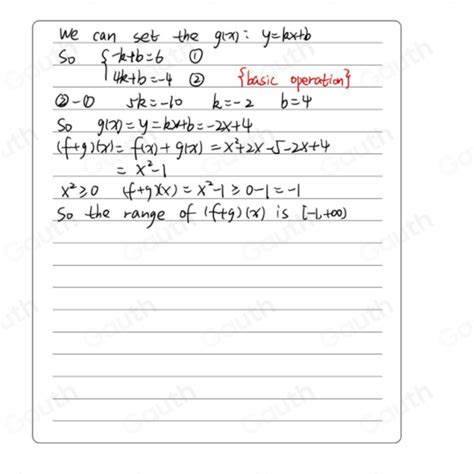 We can set the g(x): y=kx+b
So { -k+b=6 ①
4k+b=-4 ② {basic operation}
②-① 5k=-10 k=-2 b=4
So g(x)=y=kx+b=-2x+4
(f+g)(x)=f(x)+g(x)=x²+2x-5-2x+4
= x²-1
x²≥0 (f+g)(x)=x²-1≥0-1=-1
So the range of (f+g)(x) is [-1,+∞)
Gauth